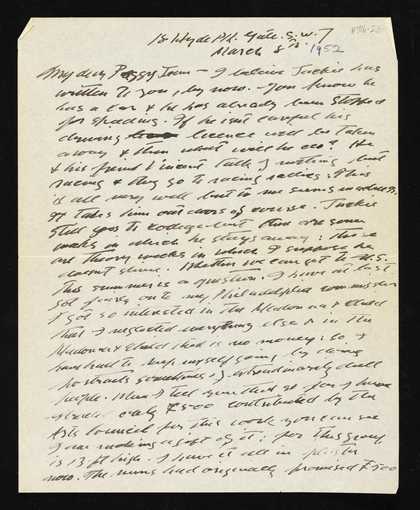 18 Hyde Pk. Gate. S.W.7
March 8th 1952
My dear Peggy Jean – I believe Jackie has
written to you, by now. You know he
has a car & he has already been stopped
for speeding. If he isn't careful his
driving licence will be taken
away & then what will he do? He
& his friend Vincent talk of nothing but
racing & they go to racing rallies. This
is all very well but to me seems madness.
It takes him out doors of course. Jackie
still goes to
weeks in which he stays away; there
are theory weeks in which I suppose he
doesn't shine. Whether we can get to U.S.
this summer is a question. I have at last
got going on to my Philadelphia commission
I got so interested in the Madonna & Child
that I neglected everything else & in the
Madonna & Child there is no money; so I
have had to keep myself going by doing
portraits sometimes of abominably dull
people. When I tell you that so far I have
only £500 contributed by the
Arts Council for this work you can see
I am making a gift of it; for this group
is 13 ft high. I have it all in plaster
now. The nuns had originally promised £500